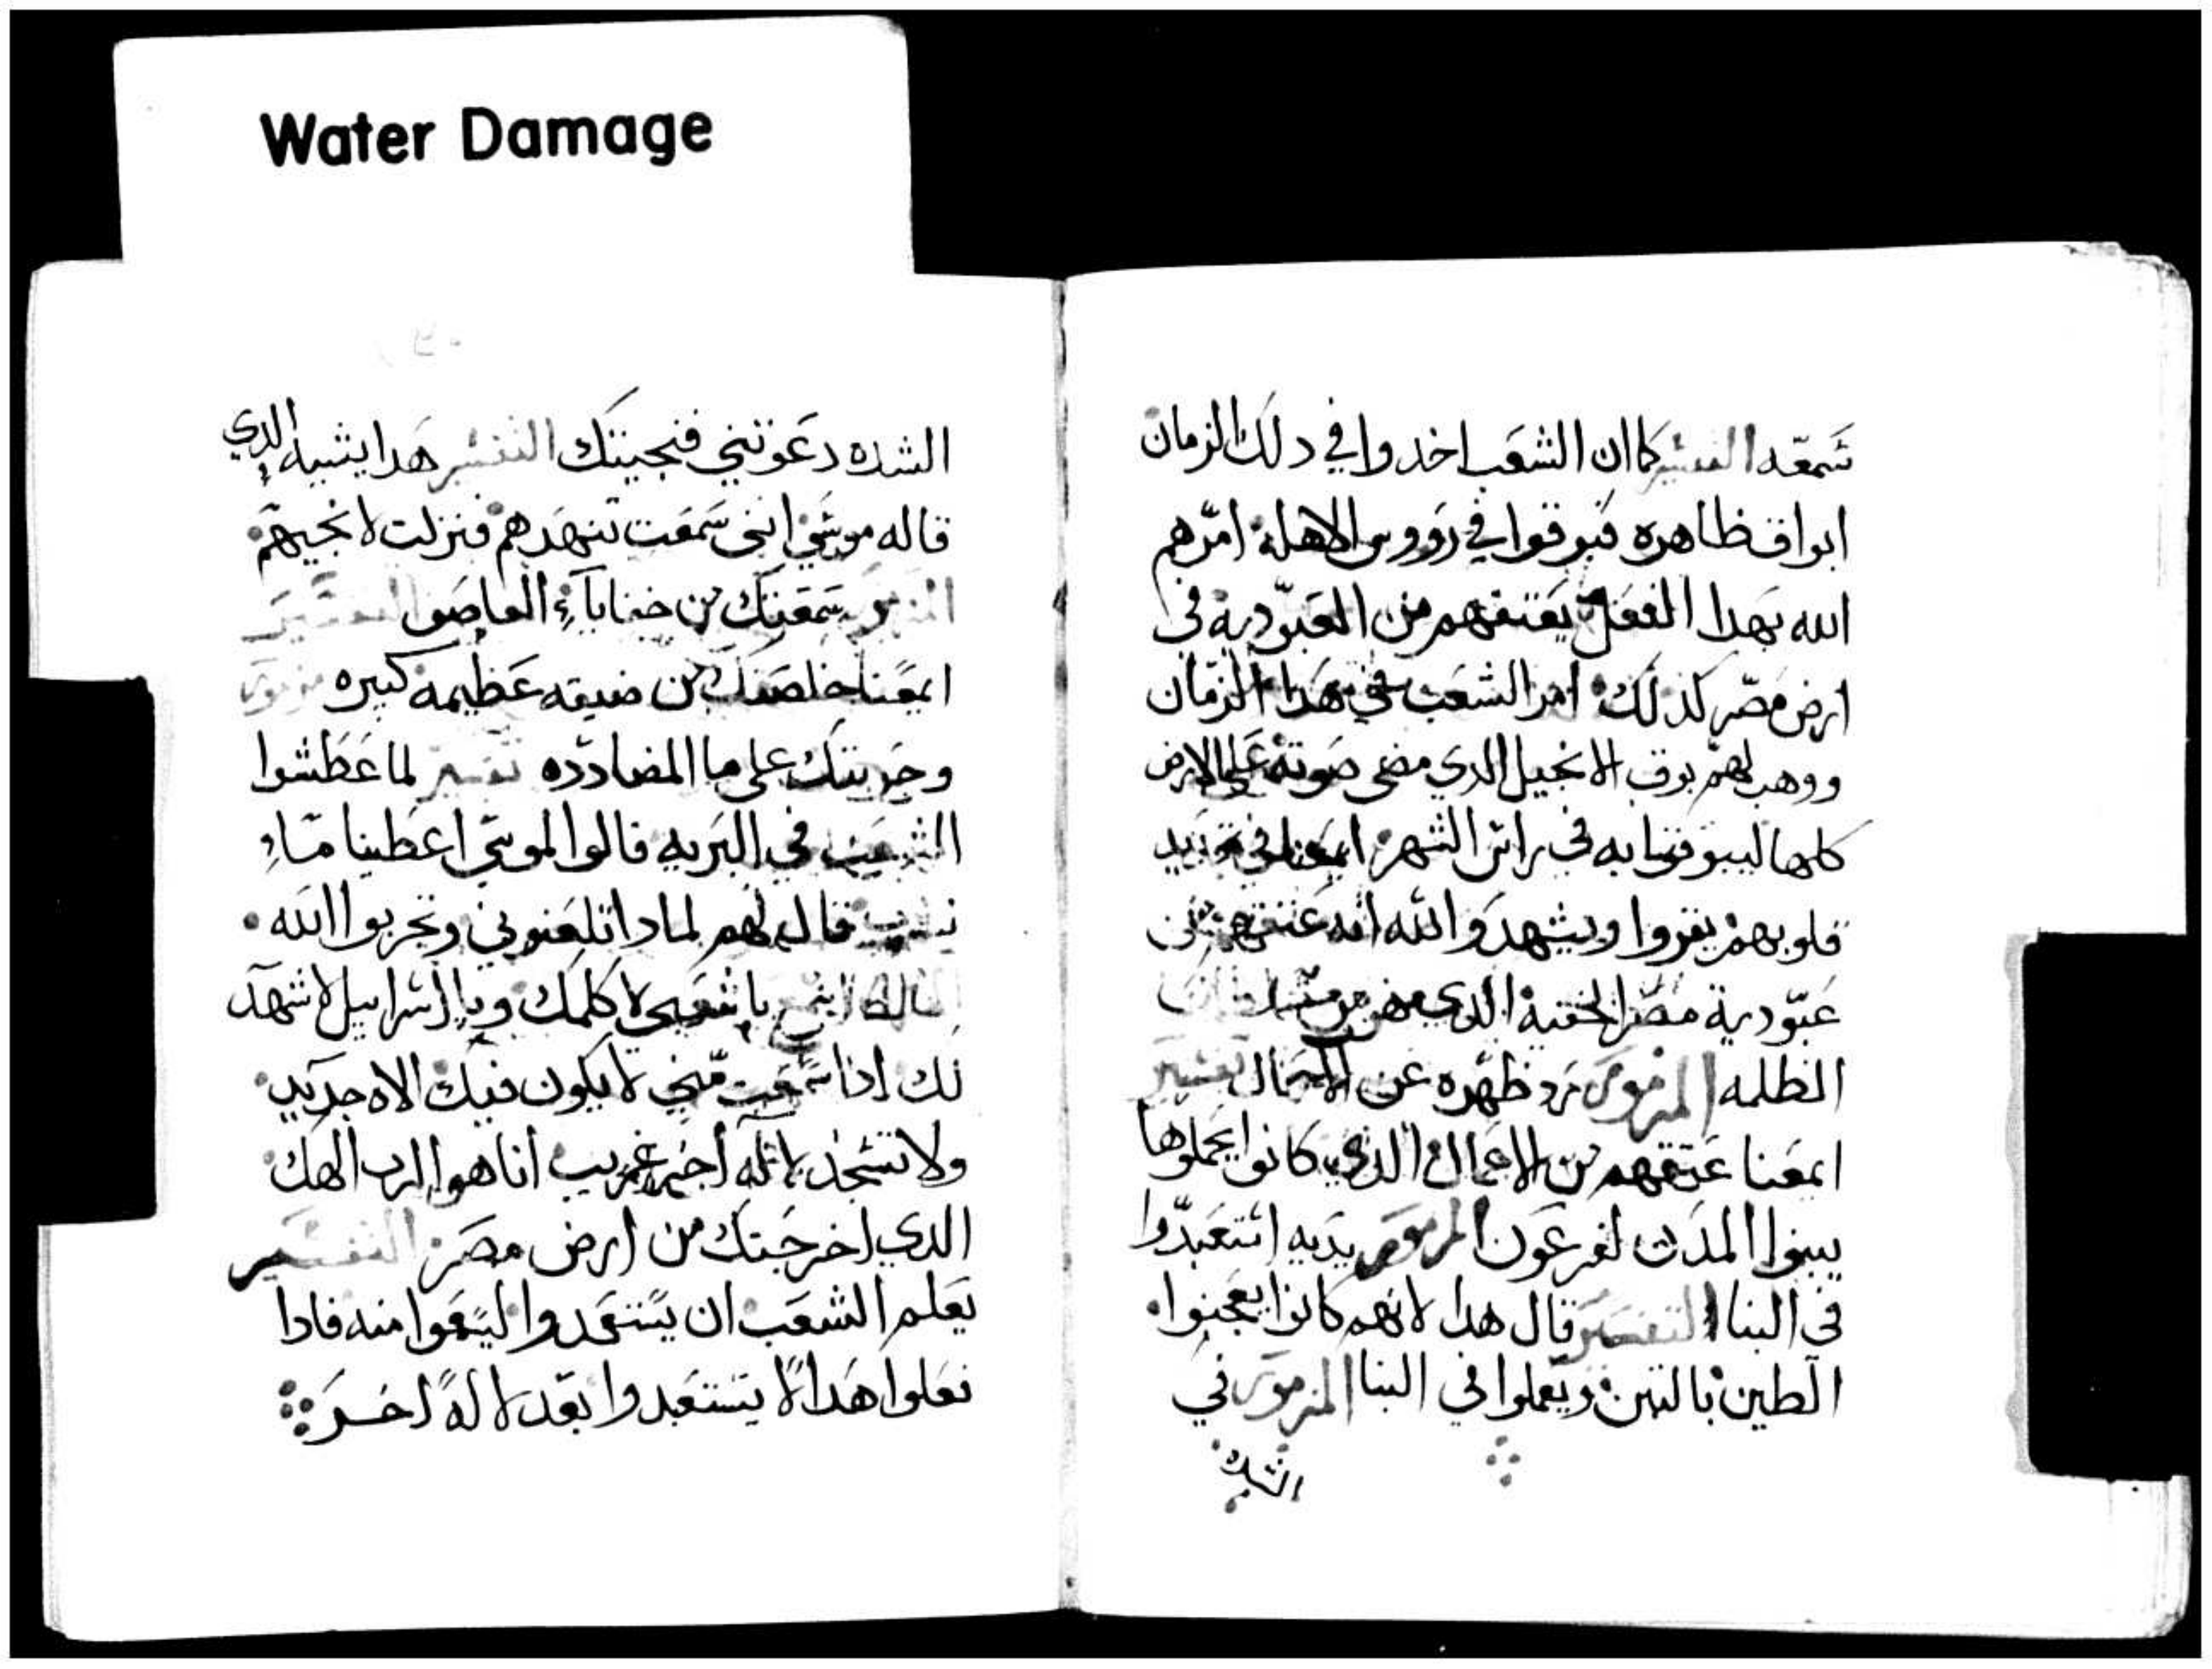 Water Damage
سمعه التفسير كما ان الشعب اخدوا في دلك الزمان
ابواق ظاهره فبوقوا في رووس الاهلة امرهم
الله بهدا الفعل يعتقهم من العبودية في
ارض مصر كذلك امر الشعب في هدا الزمان
ووهب لهم بوق الانجيل الدي مضى صوته على الارض
كلها ليبوقوا به في راس الشهر ايمعنا في تجديد
قلوبهم يقروا ويشهدوا الله انه عتقهم من
عبودية مصر الخفية الدي
الظلمه المزمور رد ظهره عن الاتمال تفسير
ايمعنا عتقهم من الاعمال الذي كانوا يعملوها
يبنوا المدن لفرعون المزمور يديه استعبدوا
في البنا التفسير قال هدا لانهم كانوا يعجنوا
الطين بالتبن ويعملوا في البنا المزمور في
الشده
الشده دعوتني فنجيتك التفسير هدا يشبه الدي
قاله موسى انني سمعت تنهدهم فنزلت لانجيهم
المزمور سمعتك من خباياء العاصف التفسير
ايمعنا خلصتك من ضيقه عظيمه كبيره مزمور
وجربتك على ما المضادده تفسير لما عطشوا
الشعب في البريه قالوا لموسى اعطينا ماء
نشرب قال لهم لمادا تلعنوني وتجربوا الله
اسمع يا شعبي لاكلمك ويا اسراييل لاشهد
لك ادا سمعت مني لا يكون فيك الاه جديد
ولا تسجد لاله اخر غريب انا هو الرب الهك
الدي اخرجتك من ارض مصر التفسير
يعلم الشعب ان يستعدوا ليسمعوا منه فادا
فعلوا هدا لا يستعبدوا بعد لاله اخر